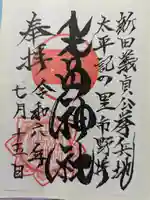 新田義貞公挙兵の地
太平記の里 市野井
生品神社
奉拝
令和六年
七月十五日